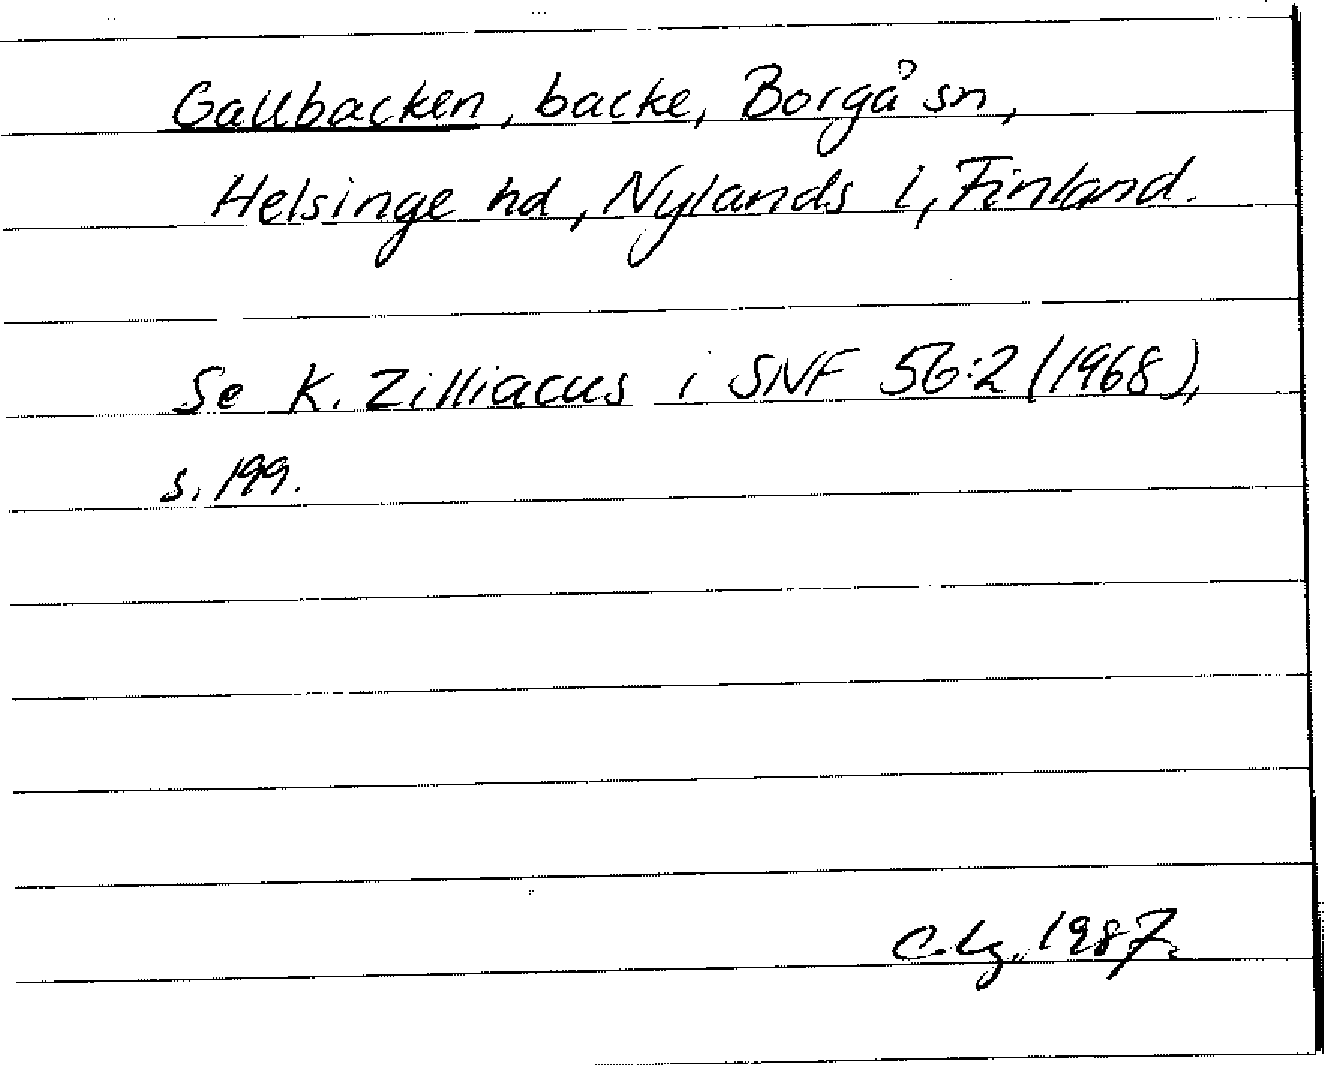 Gallbacken, backe, Borgå sn,
Helsinge hd, Nylands l, Finland.
Se K. Zilliacus i SNF 56:2 (1968),
s. 199.
C. Lg. 1987.